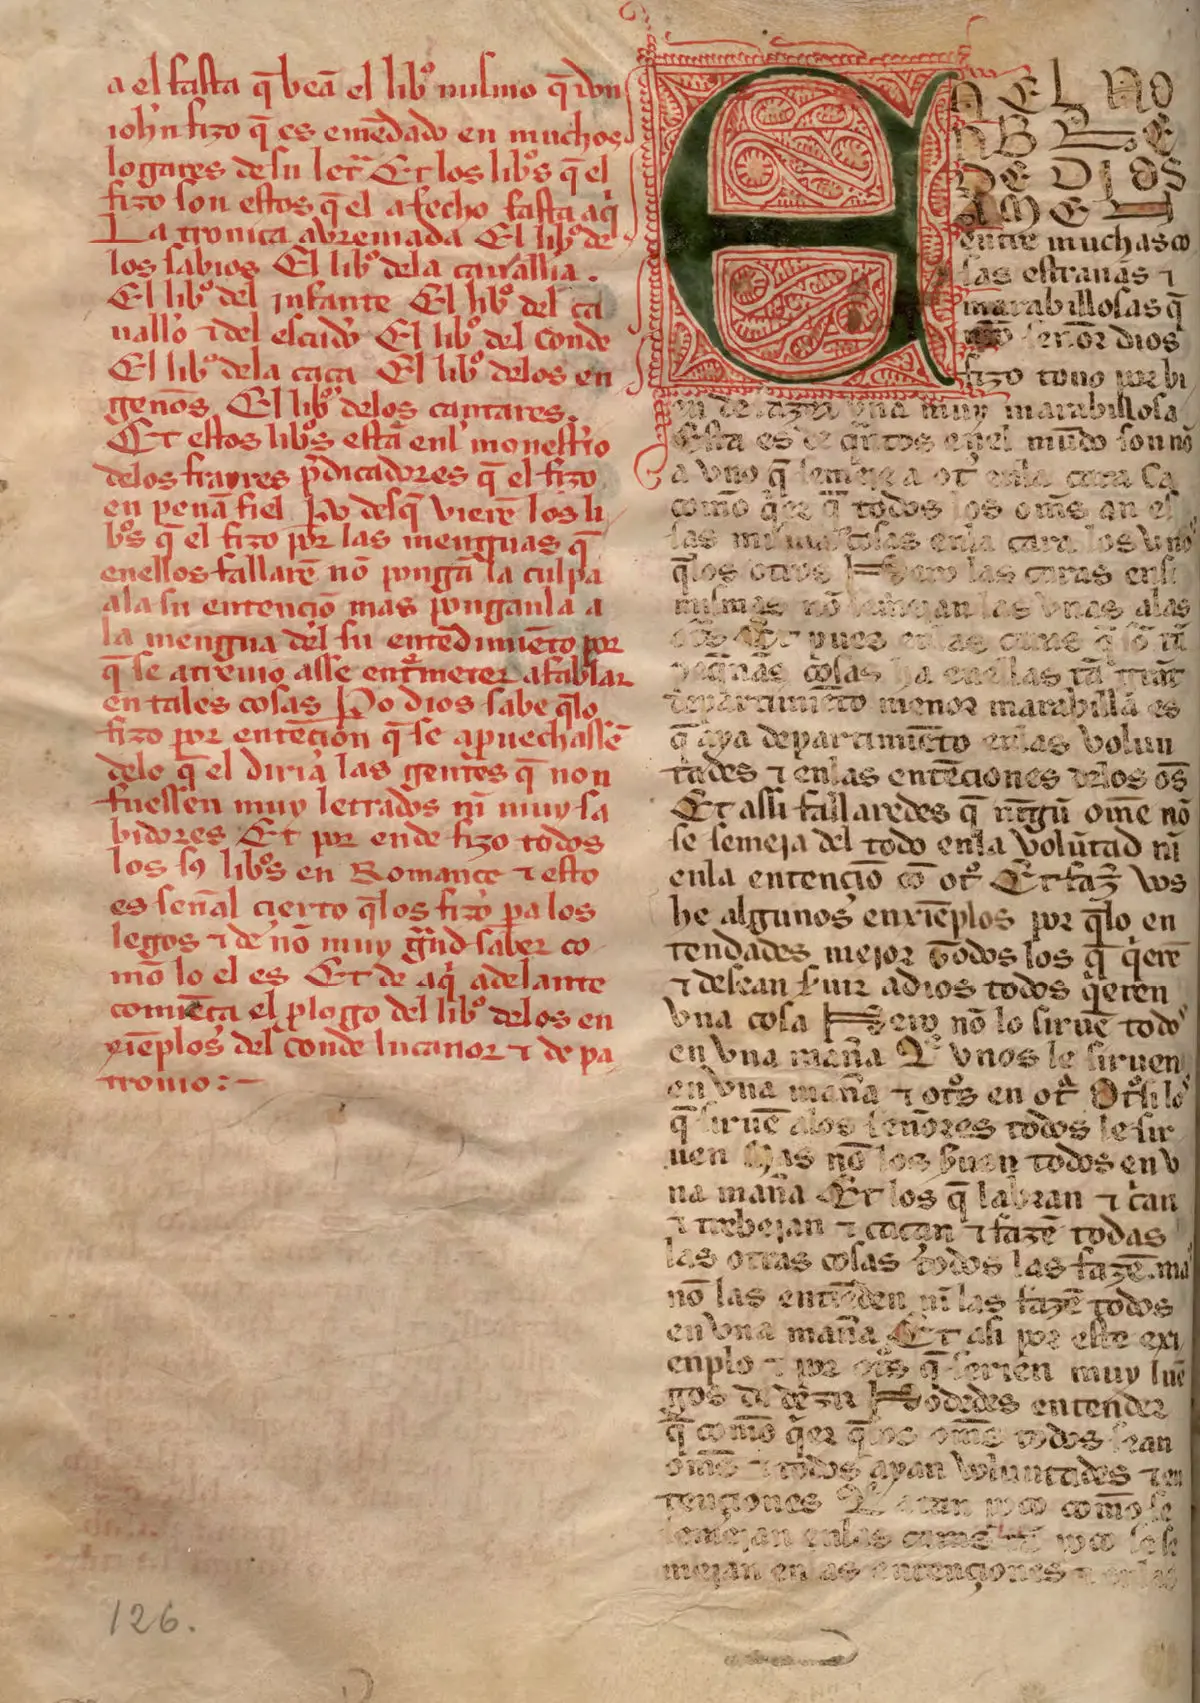 a el fasta q̄ veā el lib̊ mismo q̄ don
ioħn fizo q̄ es emēdado en muchos
logares de su letr̄ Et los lib̊s q̄ el
fizo son estos q̄ el a fecho fasta aq̄
La cronica abreuiada El lib̊ de
los sabios El lib̊ dela caualłia .
El lib̊ del jnfante El lib̊ del ca
uallo τ del escudo El lib̊ del Conde
El lib̊ dela caça El lib̊ delos en
gennos El lib̊ delos cantares .
Et estos lib̊s estā enl̄ monesterio
delos frayres p̄dicadores q̄ el fizo
en pennafiel Po desq̄ vierē los li
b̊s q̄ el fizo por las menguas q̄
enellos fallarē nō pongā la culpa
ala su entençiō mas pongan la a
la mengua del su entēdimiēto por
q̄ se atreuio asse ent̄meter a fablar
en tales cosas Po dios sabe q̄lo
fizo por entēcion q̄ se ap̄uechassē
delo q̄ el diria las gentes q̄ non
fuessen muy letrados nī muy sa
bidores Et por ende fizo todos
los sꝯ lib̊s en Romançe τ esto
es señal çierto q̄los fizo pa los
legos τ de nō muy g̃nd saber co
mō lo el es Et de aq̄ adelante
comiēça el plogo del lib̊ delos en
xiēplos del Conde lucanor τ de pa
tronio :—
EN EL NO
NBRE
DE DIOS
AMEN
entre muchas co
sas estrañas τ
marabillosas q̄
señor dios
fizo touo por bi
en de fazer vna muy marabillosa
Esta es de q̄ntos enel mūdo son nō
a vno q̄ semeje a otͬ enla cara Ca
comō q̄er q̄ todos los om̄s an es
sas mismas cosas enla cara los vnos
q̄los otros Pero las caras en si
mismas nō semejan las vnas alas
ot̄s Et pues enlas caras q̄ sō tā
peq̄nas cosas ha enellas tā grāt
departimiēto menor marabilla es
q̄ aya departimiēto enlas volun
tades τ enlas entēciones delos oͫs
Et assi fallaredes q̄ nīgū ome nō
se semeja del todo enla volūtad nī
enla entençiō cō otͦ Et faz̄ vos
he algunos enxiēplos por q̄lo en
tendades mejor Todos los q̄ q̄erē
τ desean ſuir a dios todos q̄eren
vna cosa Pero nō lo siruē todos
en vna mañā q̄ vnos le siruen
en vna mañā τ ot̊s en otͣ Otͦsi los
q̄ siruē alos señores todos le sir
uen Mas nō los siruen todos en v
na mañā Et los q̄ labran τ cͥan
τ trebejan τ caçan τ fazē todas
las otras cosas Todos las fazē mas
nō las entiēden nī las fazē todos
en vna mañā Et asi por este exi
enplo τ por ot̊s q̄ serien muy luē
gos de dezir Podedes entender
q̄ comō q̄er q̄los om̄s todos sean
om̄s τ todos ayan voluntades τ en
tençiones q̄ atan poco comō se
semejan enlas caras tā poco se se
mejan enlas entençiones τ enlas
126.